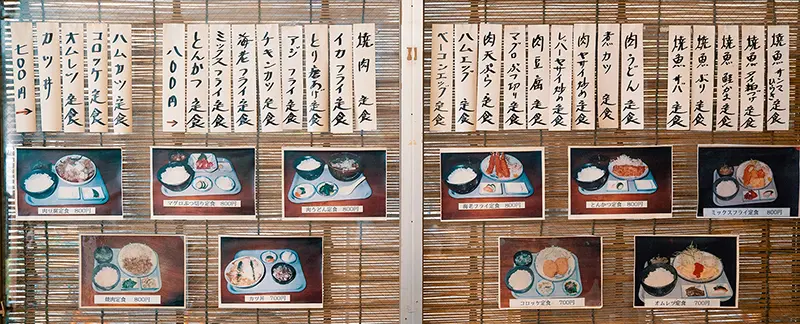 七〇〇円→
カツ丼
オムレツ定食
コロッケ定食
ハムカツ定食
八〇〇円→
とんかつ定食
ミックスフライ定食
海老フライ定食
チキンカツ定食
アジフライ定食
とり唐あげ定食
イカフライ定食
焼肉定食
ベーコンエッグ定食
ハムエッグ定食
肉天ぷら定食
マグロぶつ切り定食
肉豆腐定食
レバーヤサイ炒め定食
肉ヤサイ炒め定食
煮カツ定食
肉うどん定食
焼魚サバ定食
焼魚ぶり定食
焼魚鮭かま定食
焼魚定食
焼魚サンマひらき定食
肉豆腐定食 800円
マグロぶつ切り定食 800円
肉うどん定食 800円
海老フライ定食 800円
とんかつ定食 800円
ミックスフライ定食 800円
焼肉定食 800円
カツ丼 700円
コロッケ定食 700円
オムレツ定食 700円